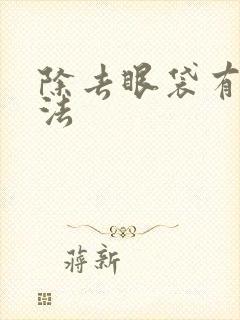 除去眼袋有
法
蒋新